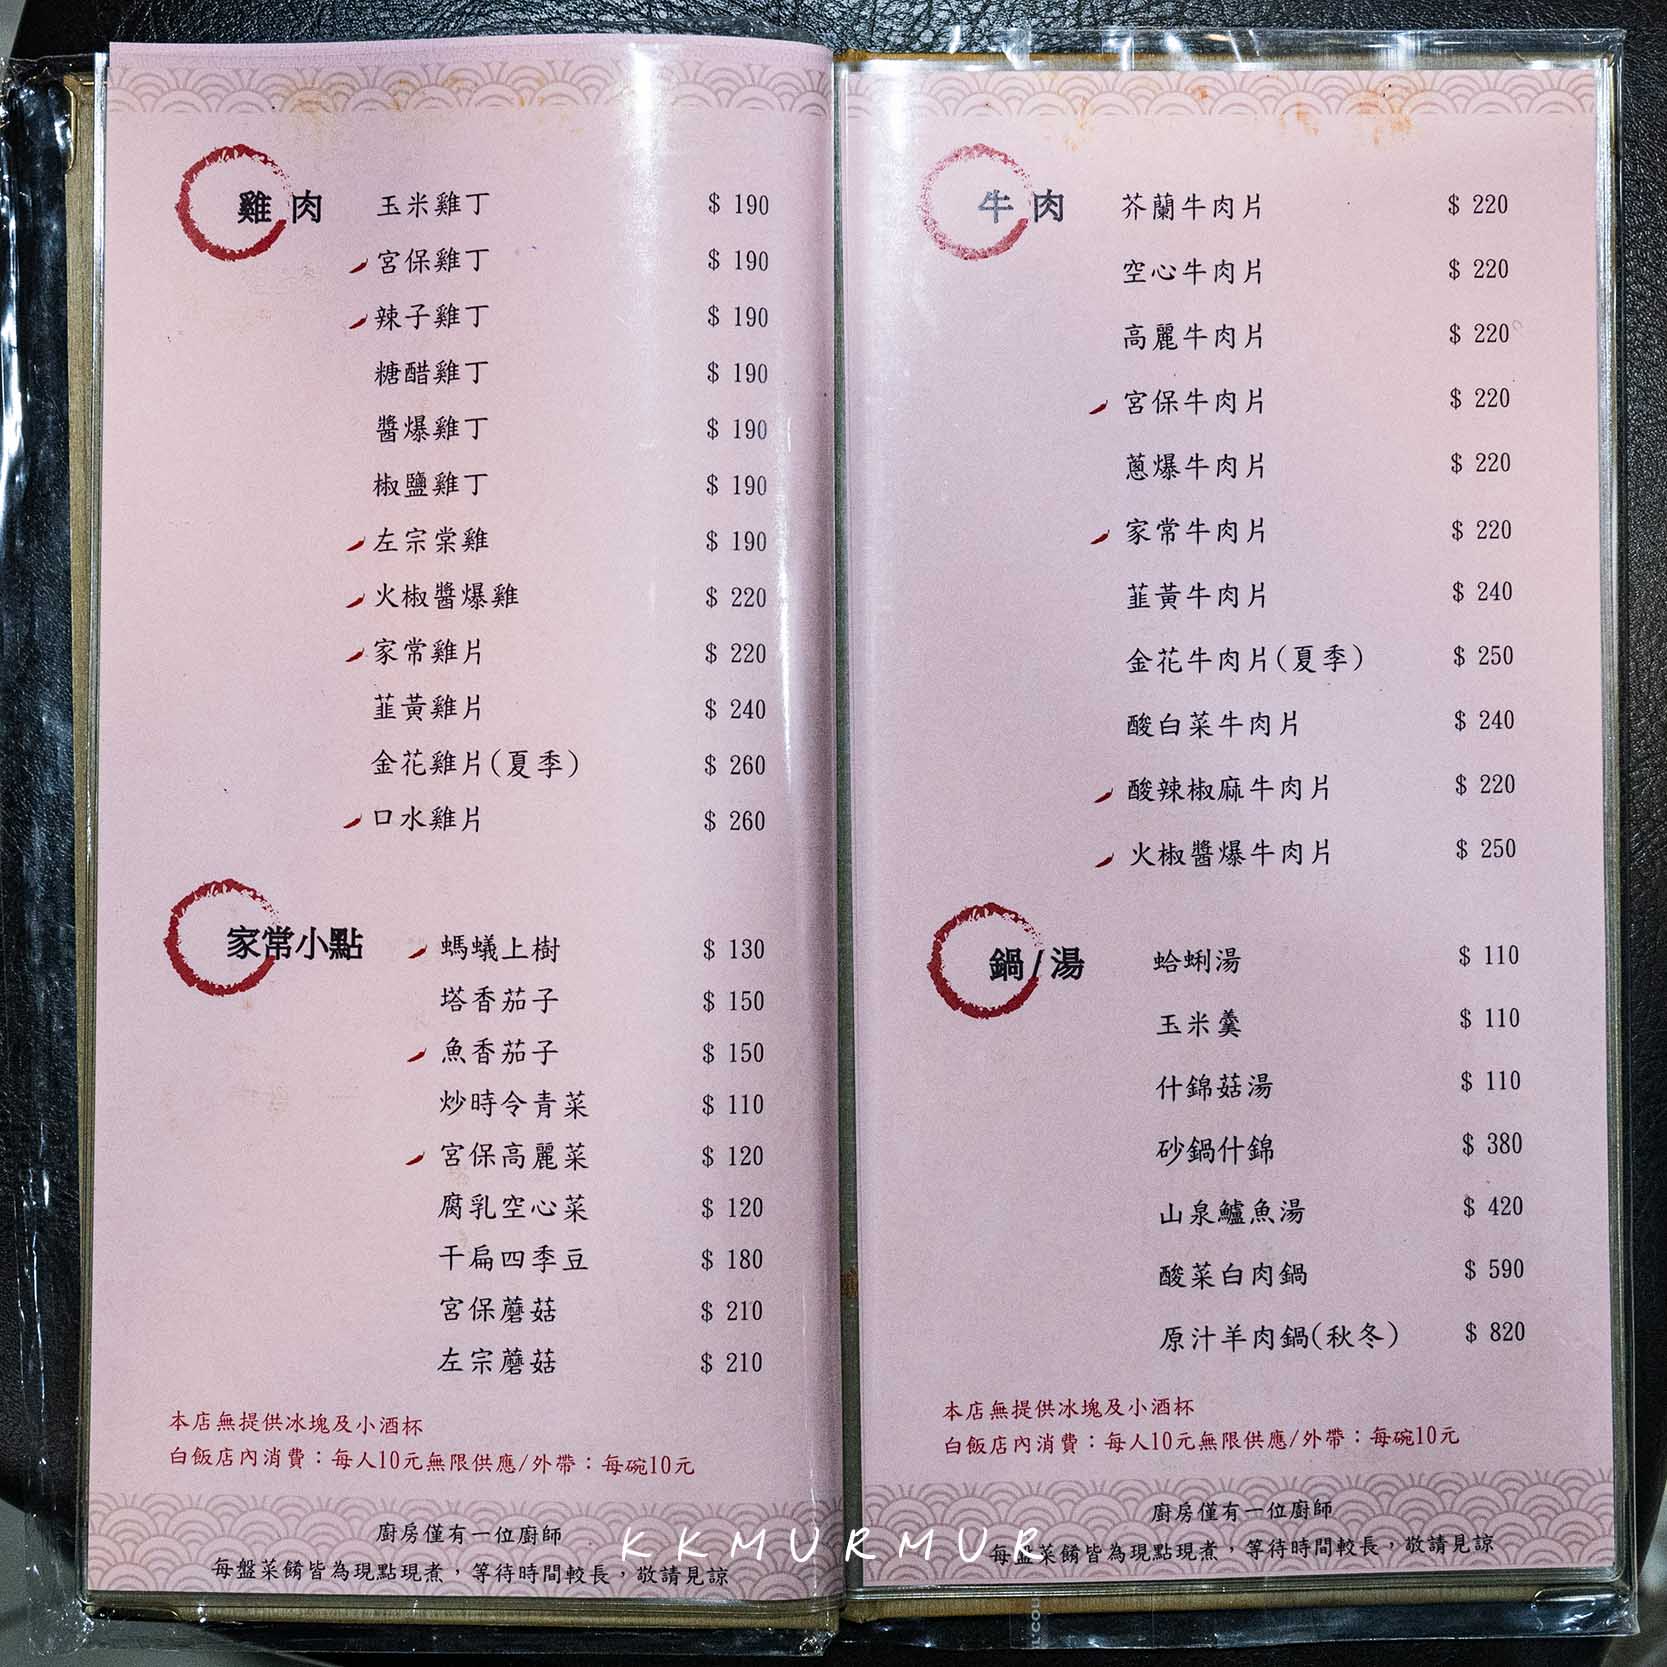 雞肉
玉米雞丁 $ 190
宮保雞丁 $ 190
辣子雞丁 $ 190
糖醋雞丁 $ 190
醬爆雞丁 $ 190
椒鹽雞丁 $ 190
左宗棠雞 $ 190
火椒醬爆雞 $ 220
家常雞片 $ 220
韮黃雞片 $ 240
金花雞片(夏季) $ 260
口水雞片 $ 260
家常小點
螞蟻上樹 $ 130
塔香茄子 $ 150
魚香茄子 $ 150
炒時令青菜 $ 110
宮保高麗菜 $ 120
腐乳空心菜 $ 120
干扁四季豆 $ 180
宮保蘑菇 $ 210
左宗蘑菇 $ 210
本店無提供冰塊及小酒杯
白飯店內消費：每人10元無限供應/外帶：每碗10元
廚房僅有一位廚師
每盤菜餚皆為現點現煮，等待時間較長，敬請見諒
牛肉
芥蘭牛肉片 $ 220
空心牛肉片 $ 220
高麗牛肉片 $ 220
宮保牛肉片 $ 220
蔥爆牛肉片 $ 220
家常牛肉片 $ 220
韮黃牛肉片 $ 240
金花牛肉片(夏季) $ 250
酸白菜牛肉片 $ 240
酸辣椒麻牛肉片 $ 220
火椒醬爆牛肉片 $ 250
鍋/湯
蛤蜊湯 $ 110
玉米羹 $ 110
什錦菇湯 $ 110
砂鍋什錦 $ 380
山泉鱸魚湯 $ 420
酸菜白肉鍋 $ 590
原汁羊肉鍋(秋冬) $ 820
本店無提供冰塊及小酒杯
白飯店內消費：每人10元無限供應/外帶：每碗10元
廚房僅有一位廚師
每盤菜餚皆為現點現煮，等待時間較長，敬請見諒
KKMURMUR